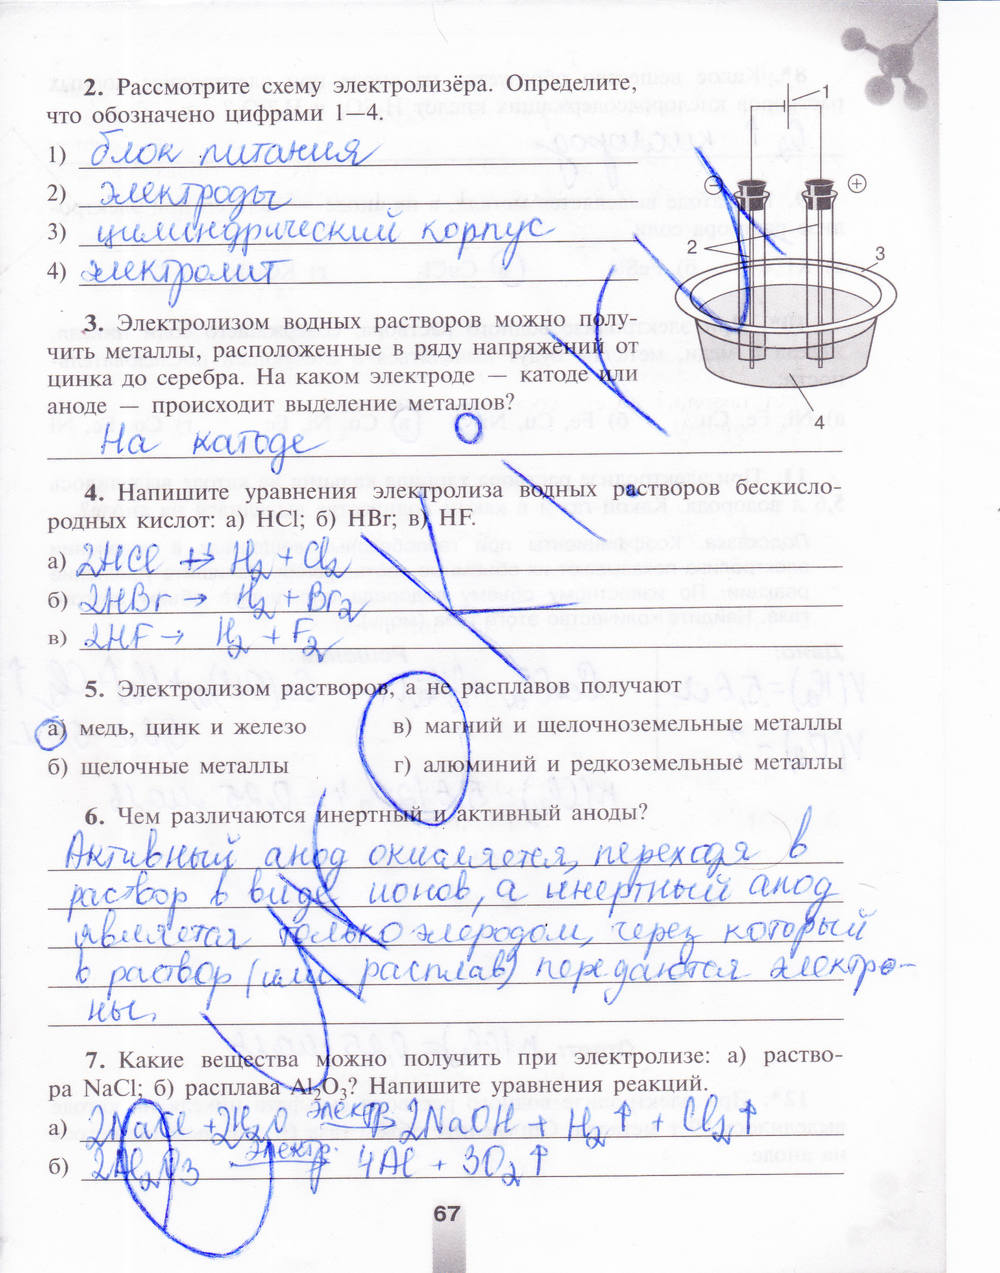 2. Рассмотрите схему электролизёра. Определите,
что обозначено цифрами 1—4.
1) блок питания
2) электроды
3) цилиндрический корпус
4) электролит
1
2
3
4
3. Электролизом водных растворов можно полу-
чить металлы, расположенные в ряду напряжений от
цинка до серебра. На каком электроде — катоде или
аноде — происходит выделение металлов?
На катоде
4. Напишите уравнения электролиза водных растворов бескисло-
родных кислот: а) HCl; б) HBr; в) HF.
а) 2HCl → H2 + Cl2
б) 2HBr → H2 + Br2
в) 2HF → H2 + F2
5. Электролизом растворов, а не расплавов получают
а) медь, цинк и железо
в) магний и щелочноземельные металлы
б) щелочные металлы
г) алюминий и редкоземельные металлы
6. Чем различаются инертный и активный аноды?
Активный анод окисляется, переходя в
раствор в виде ионов, а инертный анод
является только элеродом, через который
в раствор (или расплав) передаются электро-
ны.
7. Какие вещества можно получить при электролизе: а) раство-
ра NaCl; б) расплава Al2O3? Напишите уравнения реакций.
а) 2NaCl + 2H2O электр. 2NaOH + H2↑ + Cl2↑
б) 2Al2O3 электр. 4Al + 3O2↑
67